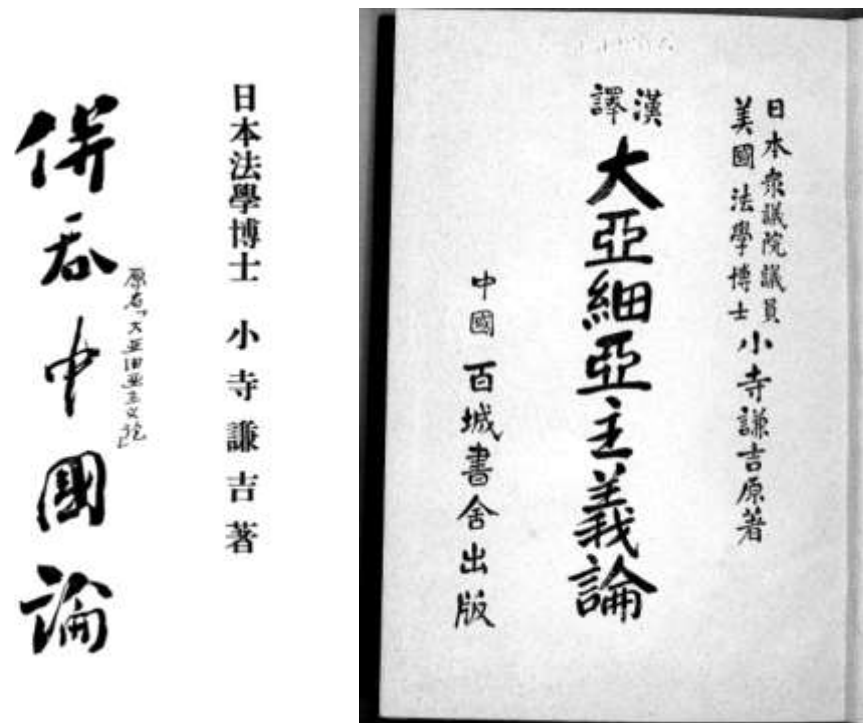 日本法學博士 小寺謙吉著
原名「大亞細亞主義論」
併吞中國論
日本衆議院議員
美國法學博士
小寺謙吉原著
漢譯
大亞細亞主義論
中國 百城書舍出版